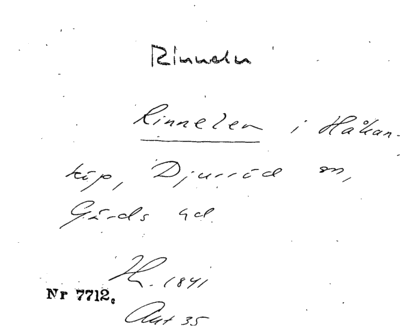 Rinnelen
Rinnelen i Håkan-
köp, Djurröd sn,
Gärds hd.
H. 1841
Nr 7712.
Avt 35